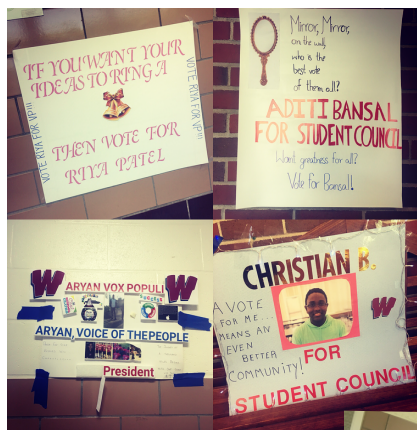 IF YOU WANT YOUR
IDEAS TO RING A
THEN VOTE FOR
RIYA PATEL
VOTE RIYA FOR VP!!!
VOTE RIYA FOR VP!!!
Mirror, Mirror,
on the wall,
who is the
best vote
of them all?
ADITI BANSAL
FOR STUDENT COUNCIL
Want greatness for all?
Vote for Bansal!
W
W
ARYAN VOX POPULI
ARYAN, VOICE OF THE PEOPLE
President
CHRISTIAN B.
A VOTE
FOR ME...
MEANS AN
EVEN
BETTER
COMMUNITY!
W
FOR
STUDENT COUNCIL